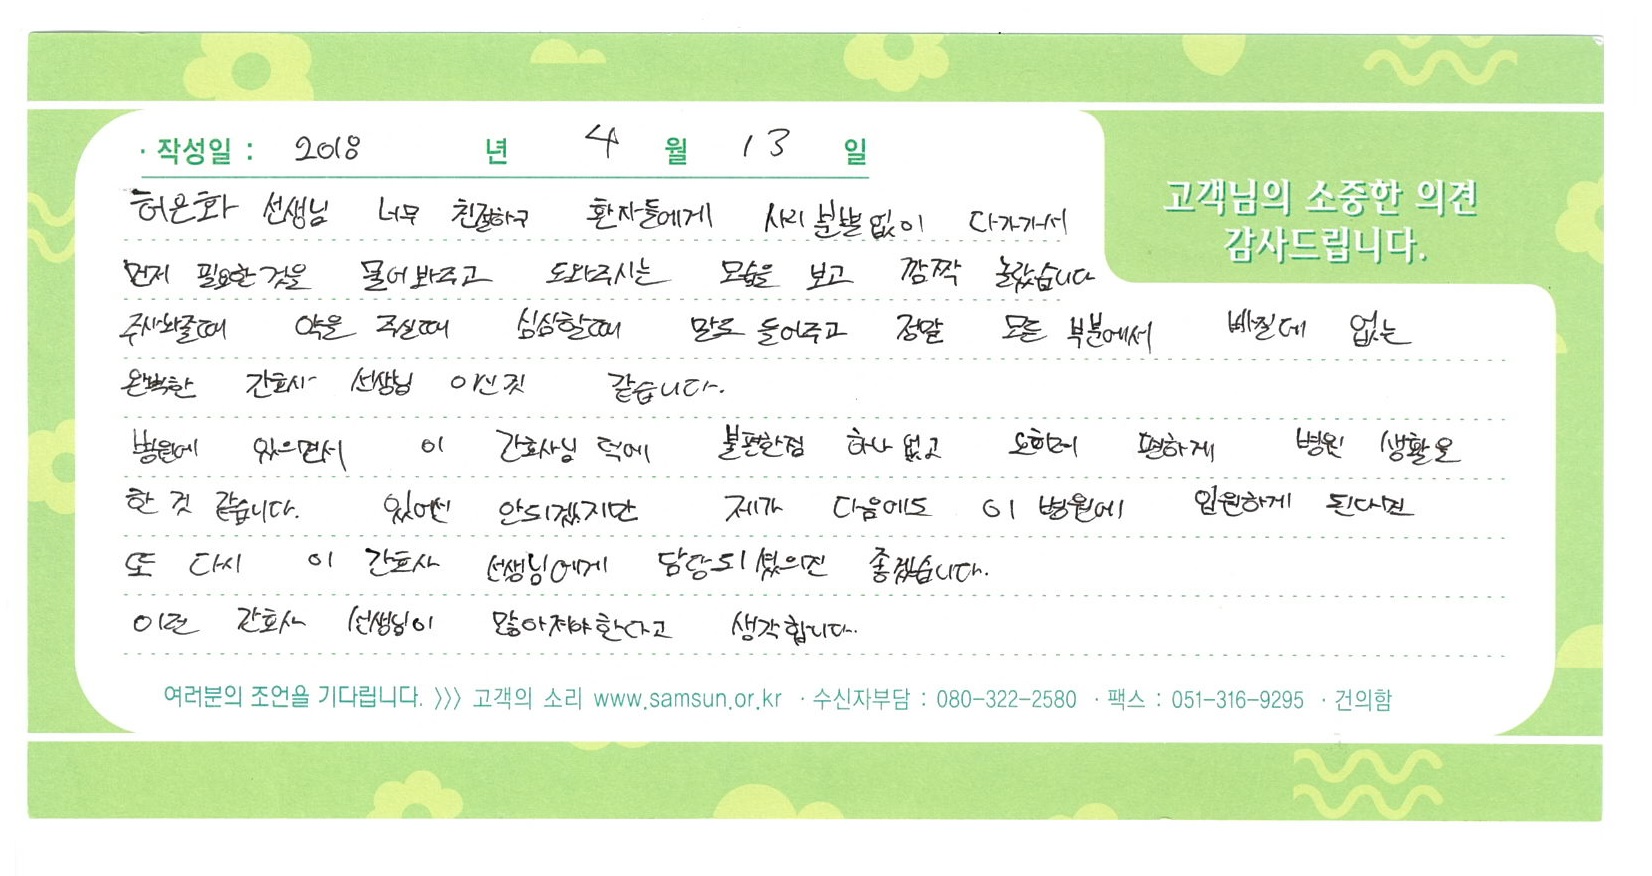 · 작성일 : 2018 년 4 월 13 일
고객님의 소중한 의견
감사드립니다.
허은화 선생님 너무 친절하구 환자들에게 사리분별없이 다가가서
먼저 필요한것을 물어봐주고 도와주시는 모습을 보고 깜짝 놀랐습니다
주사놔줄때 약을 주실때 심심할때 말도 들어주고 정말 모든 부분에서 빠질데 없는
완벽한 간호사 선생님 이신것 같습니다.
병원에 있으면서 이 간호사님 덕에 불편한점 하나 없고 오히려 편하게 병원 생활을
한 것 같습니다. 있어선 안되겠지만 제가 다음에도 이 병원에 입원하게 된다면
또 다시 이 간호사 선생님에게 담당되셨으면 좋겠습니다.
이런 간호사 선생님이 많아져야한다고 생각합니다.
여러분의 조언을 기다립니다. 〉〉〉 고객의 소리 www.samsun.or.kr · 수신자부담 : 080-322-2580 · 팩스 : 051-316-9295 · 건의함